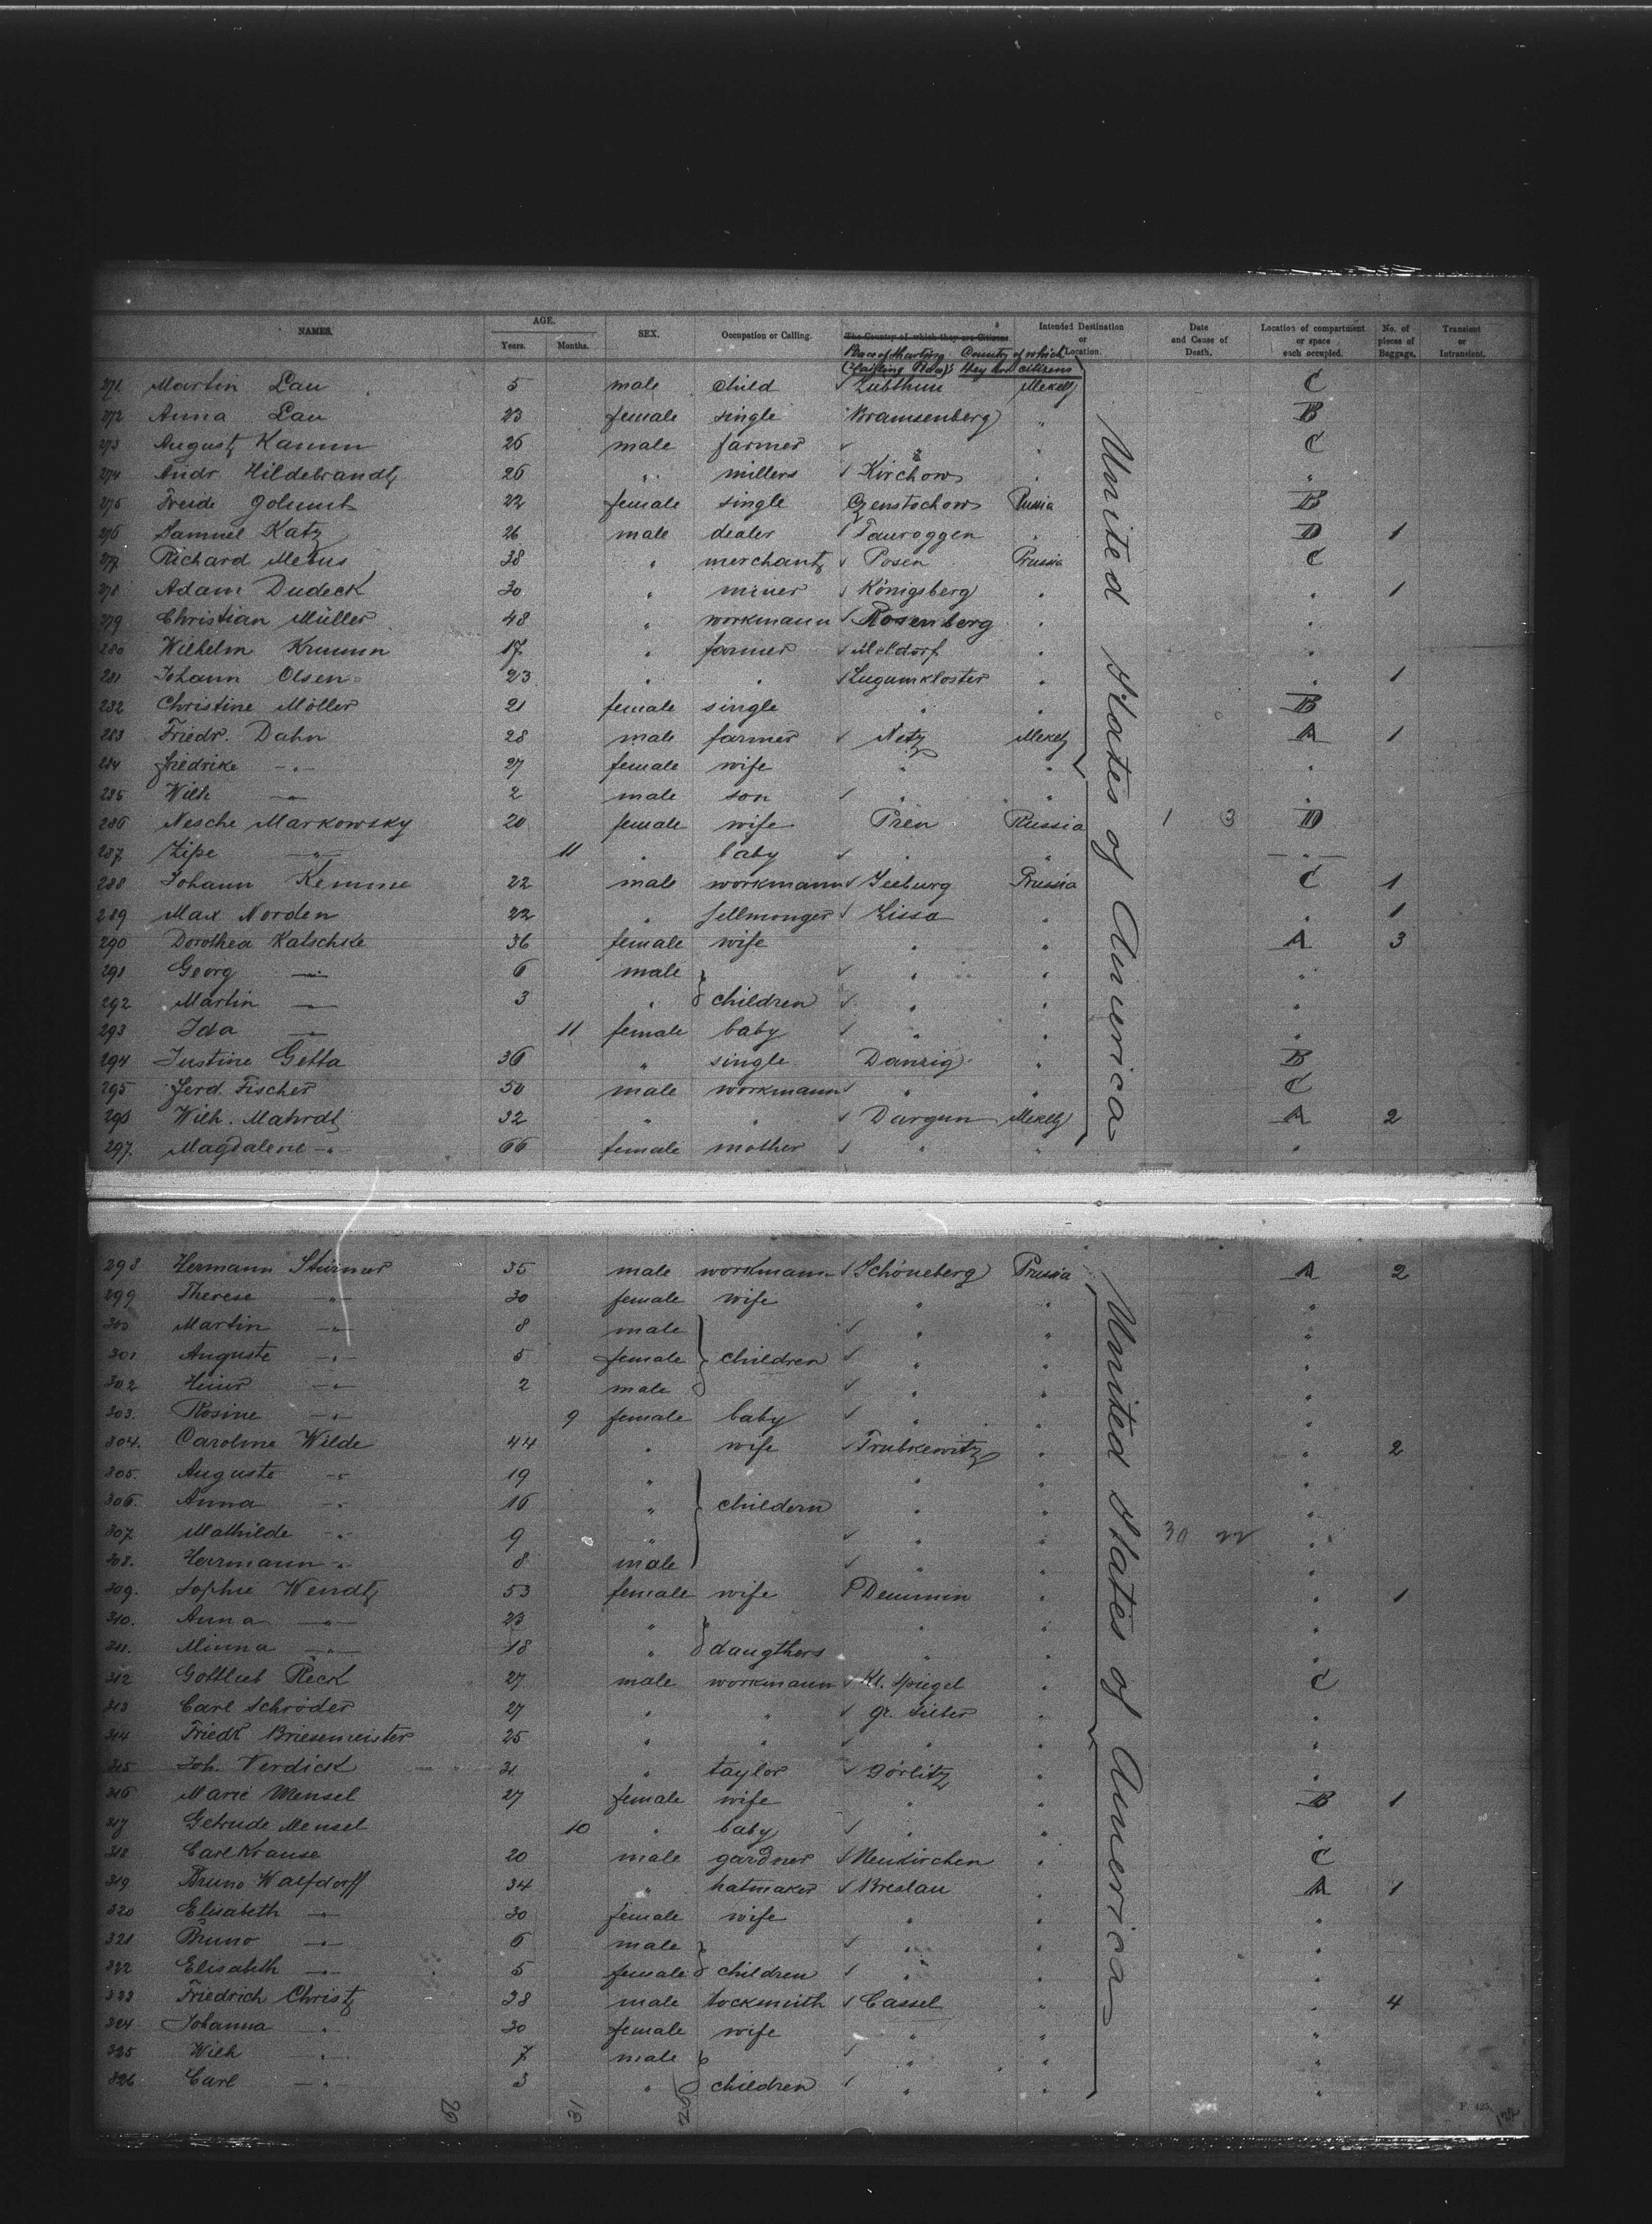 NAMES. AGE. Years. Months. SEX. Occupation or Calling. The Country of which they are Citizens Intended Destination or Location. Date and Cause of Death. Location of compartment or space each occupied. No. of pieces of Baggage. Transient or Intransient.
Place of starting Country of which they are citizens
271 Martin Lau 5 male child Lübtheen Meckl
272 Anna Lau 23 female single " B
273 August Kamm 26 male farmer " C
274 Andr. Hildebrandt 26 " millers Kirchow " "
275 Freide Golumb 22 female single Czenstochow Russia B
276 Samuel Katz 26 male dealer Tauroggen " D 1
277 Richard Mebus 38 " merchant Posen Prussia C
278 Adam Dudeck 30 " miner Königsberg " " 1
279 Christian Müller 48 " workmann Rosenberg " "
280 Wilhelm Krumm 17 " farmer Meldorf " "
281 Johann Olsen 23 " " Lugumkloster " " 1
282 Christine Möller 21 female single " " B
283 Friedr. Dahn 28 male farmer Netz Mekelb A 1
284 Fredrike " 27 female wife " " "
285 Wilh " 2 male son " "
286 Nesche Markowsky 20 female wife Pren Russia 1 3 D
287 Zipe " 11 " baby " " "
288 Johann Kemme 22 male workmann Seeburg Prussia C 1
289 Max Norden 22 " fellmonger Lissa " " 1
290 Dorothea Katschke 36 female wife " " A 3
291 Georg " 6 male " " "
292 Martin " 3 " children " " "
293 Ida " 11 female baby " " "
294 Justine Getta 36 " single Danzig " B
295 Ferd. Fischer 50 male workmann " " C
296 Wilh. Mahrdt 32 " " Dargun Mekelb A 2
297. Magdalene " 66 female mother " " "
United States of America
298 Hermann Stürmer 35 male workmann Schöneberg Prussia A 2
299 Therese " 30 female wife " " "
300 Martin " 8 male " " "
301 Auguste " 5 female children " " "
302 Heinr " 2 male " " "
303. Rosine " 9 female baby " " "
304. Caroline Wilde 44 " wife Trubkewitz " " 2
305. Auguste " 19 " " " "
306. Anna " 16 " childern " " "
307 Mathilde " 9 " " " 30 22 "
308. Herrmann " 8 male " " "
309. Sophie Wendt 53 female wife Demmin " " 1
310. Anna " 23 " " " "
311. Minna " 18 " daugthers " " "
312 Gottlieb Reck 27 male workmann Kl. Spiegel " C
313 Carl Schröder 27 " " gr. " "
314 Friedr Briesemeister 25 " " " " "
315 Joh. Verdick 31 " taylor Görlitz " "
316 Marie Mensel 27 female wife " " B 1
317 Getrude Mensel 10 " baby " " "
318 Carl Krause 20 male gardner Neukirchen " C
319 Bruno Walfdorff 34 " hatmaker Breslau " A 1
320 Elisabeth " 30 female wife " " "
321 Bruno " 6 male " " "
322 Elisabeth " 5 female children " " "
323 Friedrich Christ 38 male locksmith Cassel " " 4
324 Johanna " 30 female wife " " "
325 Wilh " 7 male " " "
326 Carl " 3 " children " " "
United States of America
31
F. 425.